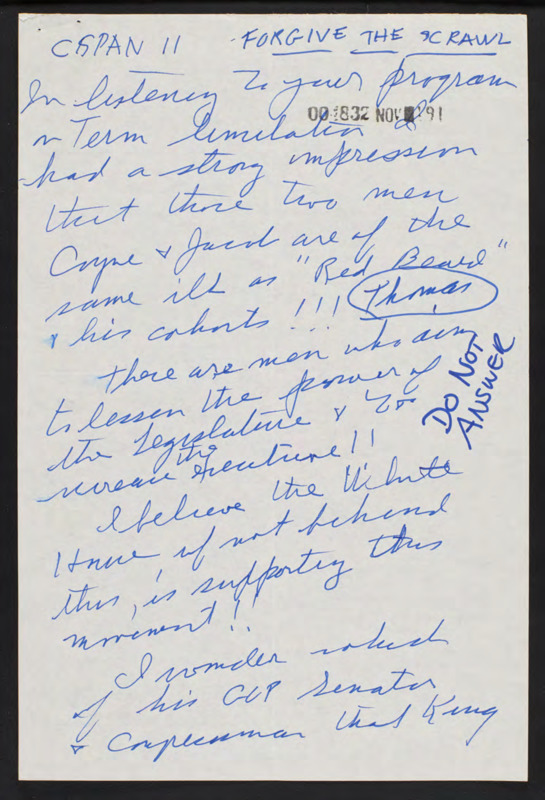 CSPAN II FORGIVE THE SCRAWL
In listening to your program
00832 NOV 91
on Term limitation I
had a strong impression
that those two men
Coyne & Jacob are of the
same ilk as "Red Beard"
& his cohorts!!! Thomas
These are men who aim
to lessen the power of
the Legislature & to
increase the Executive!!
DO NOT
ANSWER
I believe the White
House if not behind
this, is supporting this
movement!!
I wonder which
of his GOP Senator
& Congressman that King